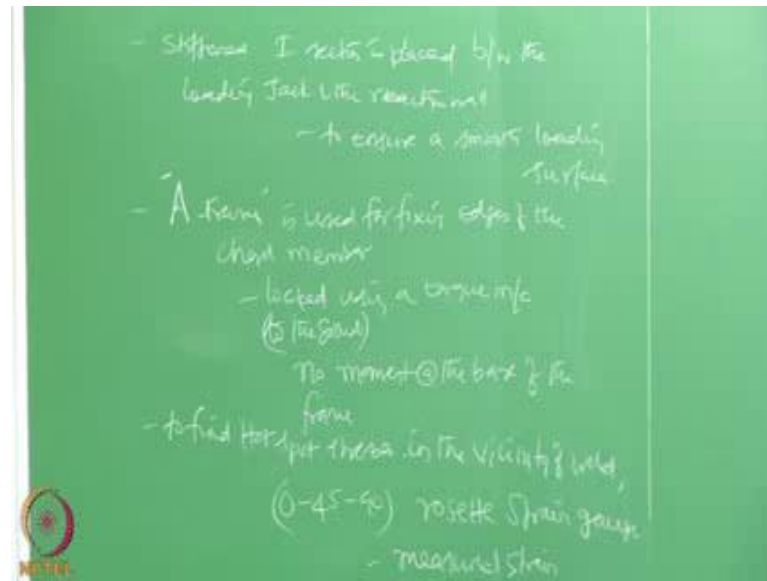 - Stiffened I section is placed b/w the
loading Jack & the reaction wall
- to ensure a smooth loading
surface
- 'A frame' is used for fixing edges of the
chord member
- locked using a torque m/c
(to the ground)
no moment @ the base of the
frame
- to find Hot spot stresses in the vicinity of weld,
(0-45-90) rosette strain gauge
- measured strain
NPTEL